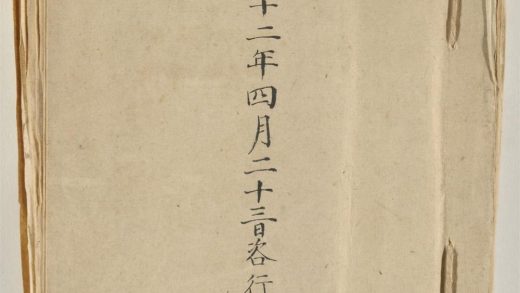 十二年四月二十三日咨行